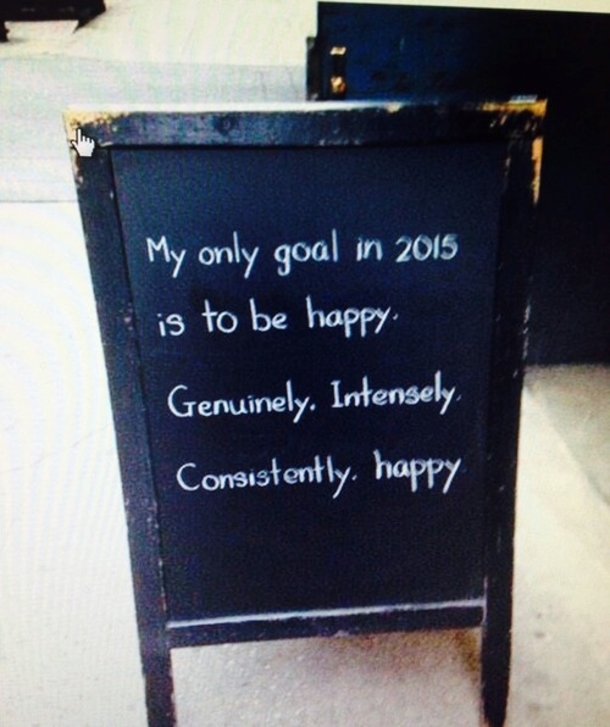 My only goal in 2015
is to be happy.
Genuinely. Intensely.
Consistently. happy